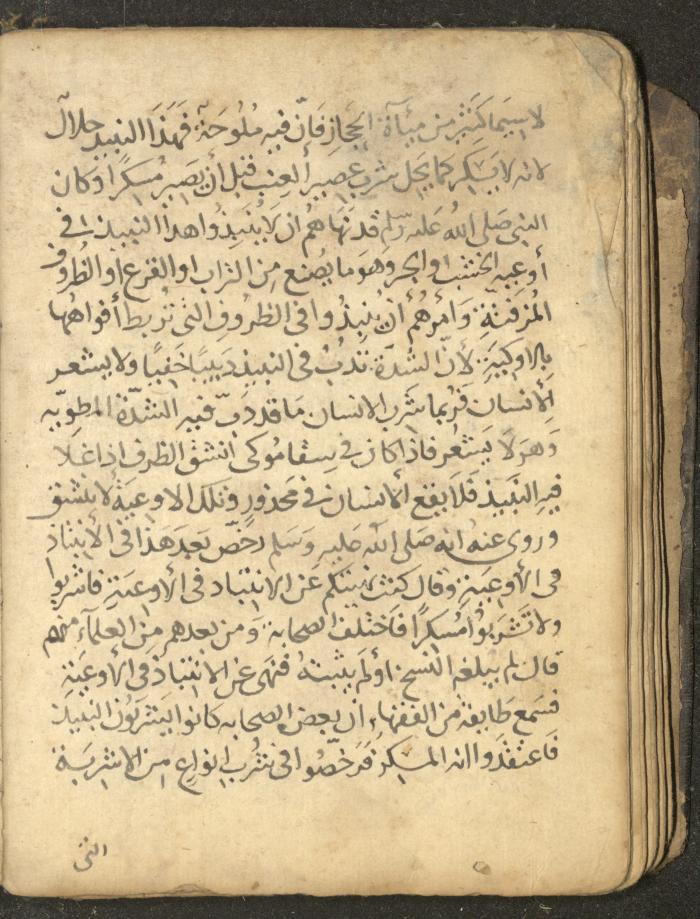 لا سيما كثير من مياه الحجاز فان فيه ملوحة فهذا النبيذ حلال
لانه لا يسكر كما يحل شرب عصير العنب قبل أن يصير مسكرا وكان
النبى صلى الله عليه وسلم قد نهاهم ان لا ينبذوا هذا النبيذ فى
أوعية الخشب او الجر وهو ما يصنع من التراب او القرع او الظروف
المزفتة وأمرهم أن ينبذوا فى الظروف التى تربط أفواهها
بالاوكية لأن الشدة تدب فى النبيذ دبيبا خفيا ولا يشعر
الأنسان فربما شرب الانسان ما قد دب فيه الشدة المطربه
وهو لا يشعر فاذا كان فى سقا موكى انشق الظرف اذا غلا
فيه النبيذ فلا يقع الانسان فى محذور وتلك الاوعية لا ينشق
وروى عنه انه صلى الله عليه وسلم رخص بعد هذا فى الأنتباذ
فى الأوعية وقال كنت نهيتكم عن الانتباد فى الأوعية فاشربوا
ولا تشربوا مسكرا فاختلف الصحابة ومن بعدهم من العلمآء منهم
قال لم يبلغه النسخ او لم يثبته فنهى عن الانتباذ فى الأوعية
فسمع طايفة من الفقهاء ان بعض الصحابه كانوا يشربون النبيذ
فاعتقدوا انه المسكر فرخصوا فى شرب انواع من الاشربة
التى